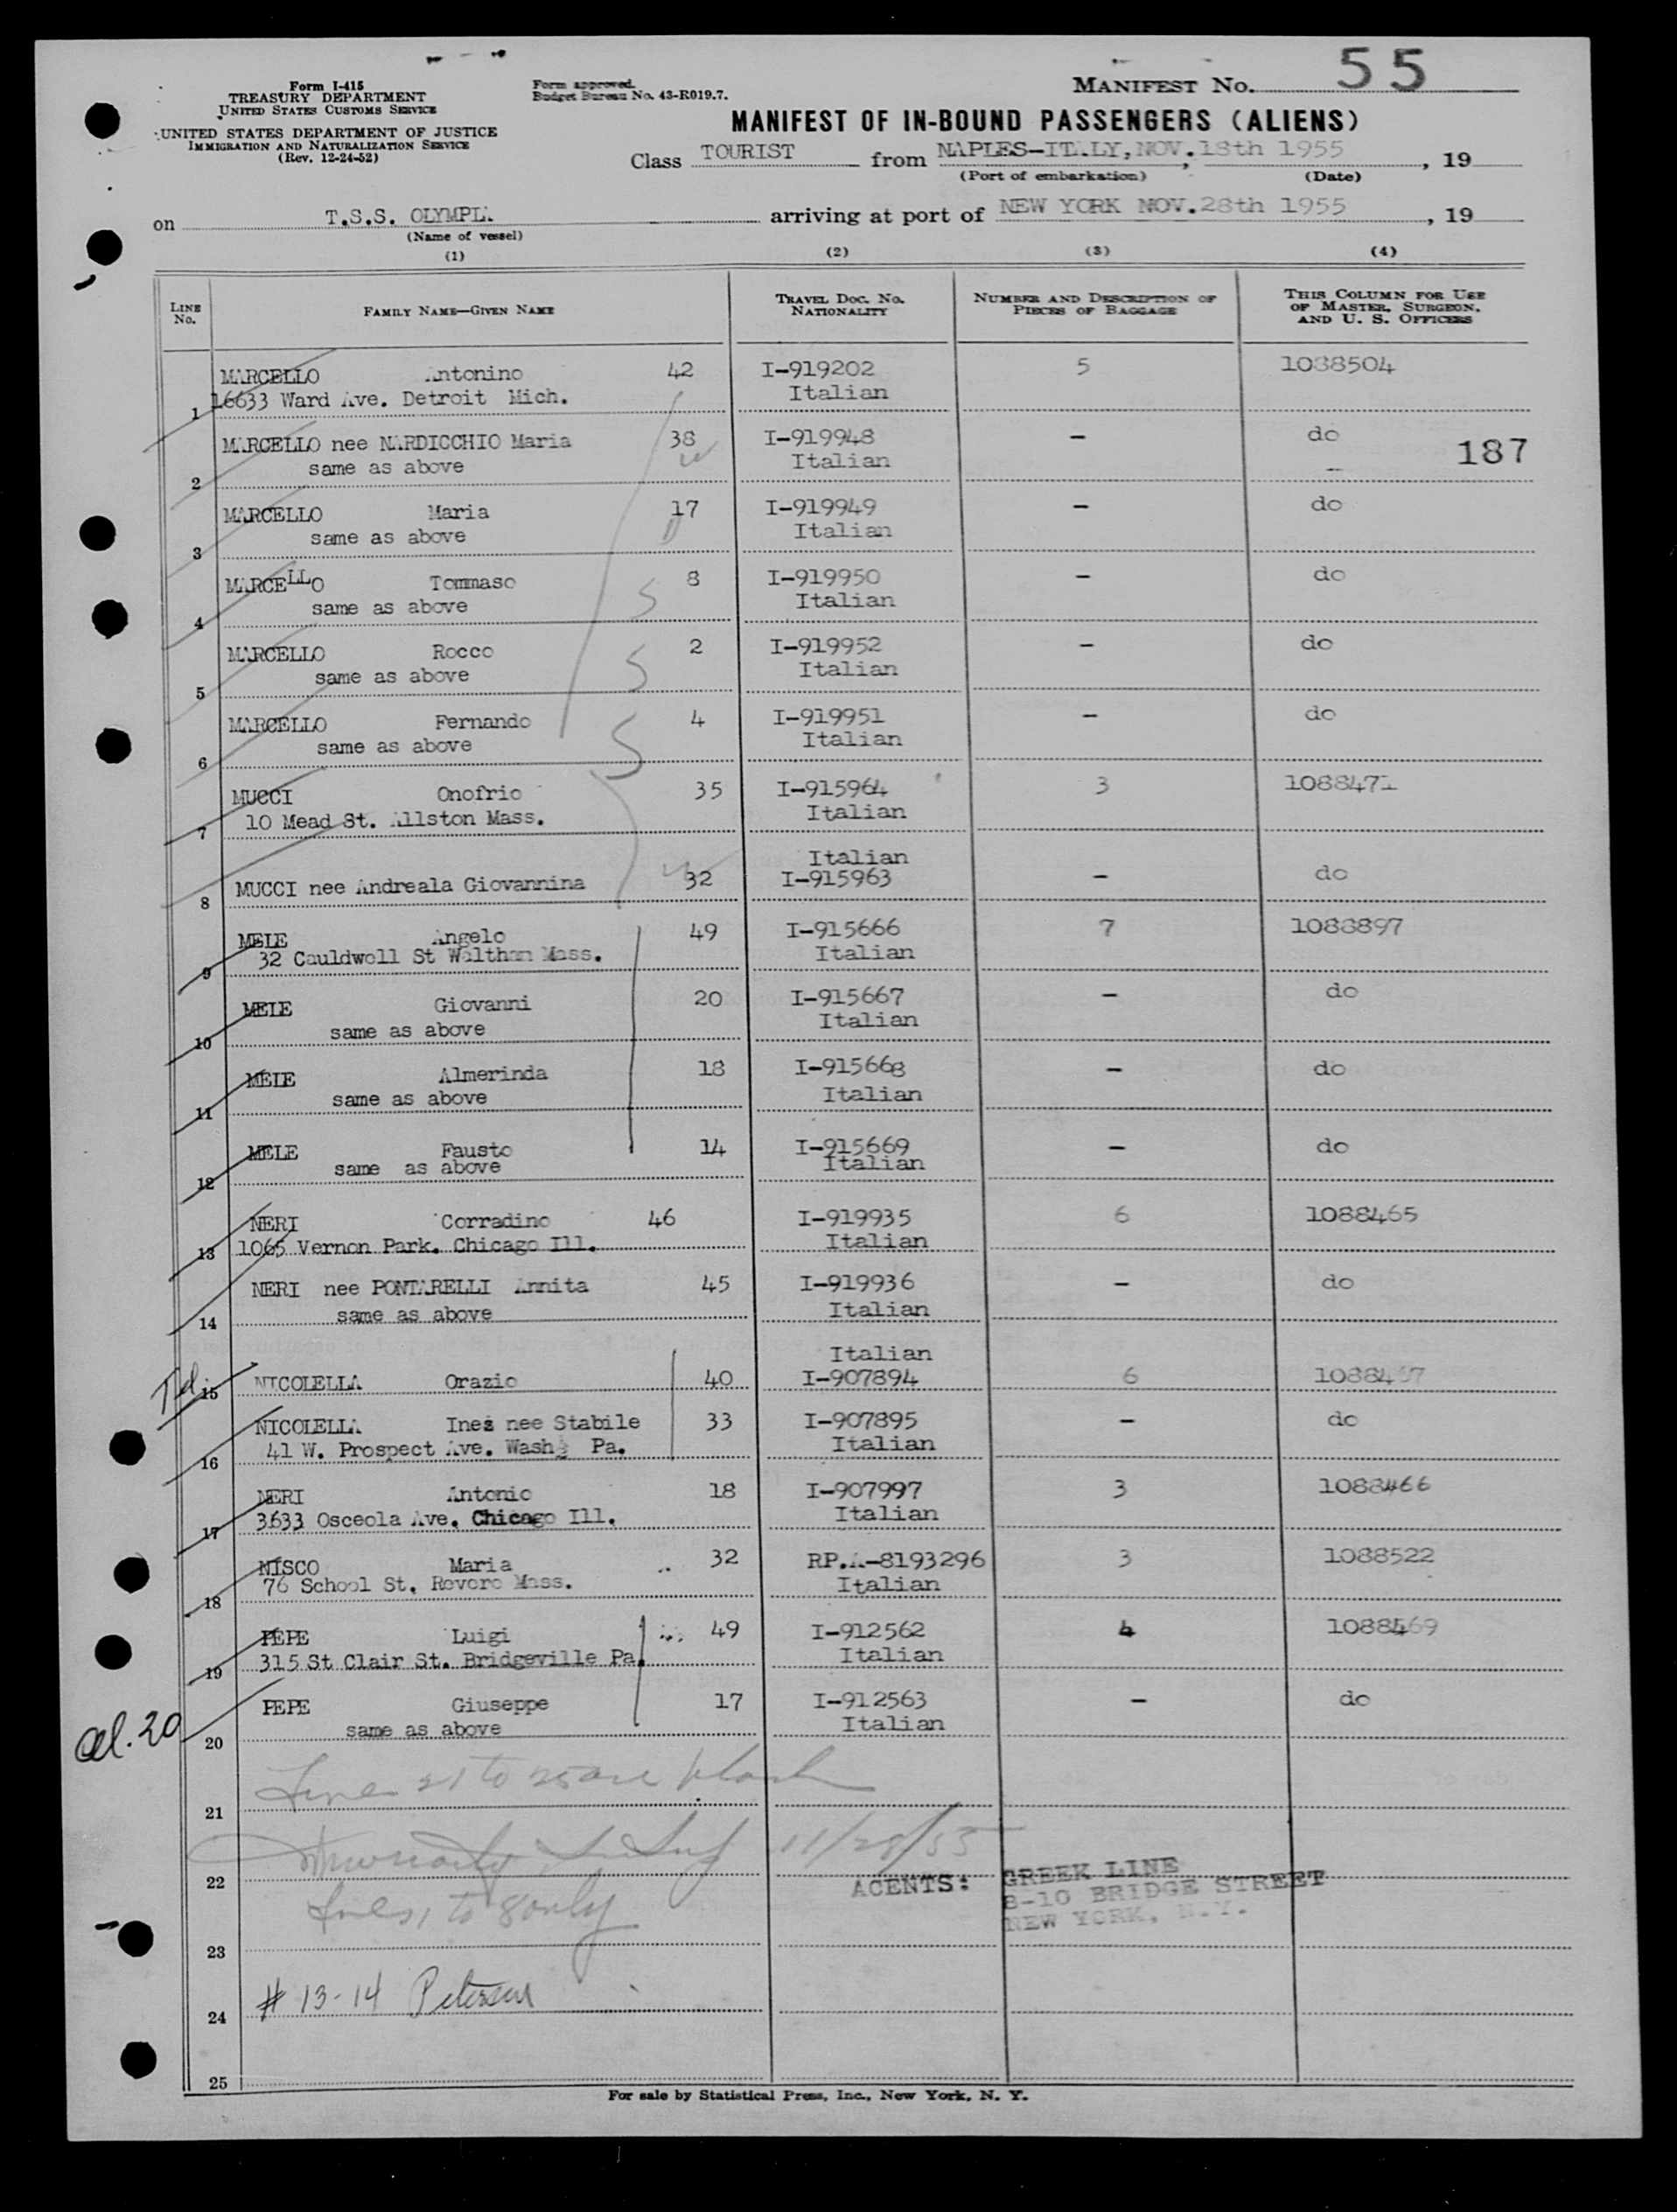 55
Form I-415
TREASURY DEPARTMENT
UNITED STATES CUSTOMS SERVICE
UNITED STATES DEPARTMENT OF JUSTICE
IMMIGRATION AND NATURALIZATION SERVICE
(Rev. 12-24-52)
Form approved.
Budget Bureau No. 43-R019.7.
MANIFEST No.
MANIFEST OF IN-BOUND PASSENGERS (ALIENS)
Class TOURIST from NAPLES-ITALY, NOV. 18th 1955, 19
(Port of embarkation) (Date)
on T.S.S. OLYMPIA arriving at port of NEW YORK NOV.28th 1955, 19
(Name of vessel)
(1) (2) (3) (4)
LINE No. FAMILY NAME—GIVEN NAME TRAVEL DOC. NO. NATIONALITY NUMBER AND DESCRIPTION OF PIECES OF BAGGAGE THIS COLUMN FOR USE OF MASTER, SURGEON, AND U. S. OFFICERS
MARCELLO Antonino 42 I-919202 5 1088504
1 16633 Ward Ave. Detroit Mich. Italian
MARCELLO nee NARDICCHIO Maria 38 I-919948 – do
187
2 same as above Italian
MARCELLO Maria 17 I-919949 – do
3 same as above Italian
MARCELLO Tommaso 8 I-919950 – do
4 same as above Italian
MARCELLO Rocco 2 I-919952 – do
5 same as above Italian
MARCELLO Fernando 4 I-919951 – do
6 same as above Italian
MUCCI Onofrio 35 I-915964 3 1088471
7 10 Mead St. Allston Mass. Italian
Italian
8 MUCCI nee Andreala Giovannina 32 I-915963 – do
MELE Angelo 49 I-915666 7 1088897
9 32 Cauldwell St Waltham Mass. Italian
MELE Giovanni 20 I-915667 – do
10 same as above Italian
MELE Almerinda 18 I-915668 – do
11 same as above Italian
MELE Fausto 14 I-915669 – do
12 same as above Italian
NERI Corradino 46 I-919935 6 1088465
13 1065 Vernon Park. Chicago Ill. Italian
NERI nee PONTARELLI Annita 45 I-919936 – do
14 same as above Italian
Italian
15 NICOLELLA Orazio 40 I-907894 6 1088467
NICOLELLA Ines nee Stabile 33 I-907895 – do
16 41 W. Prospect Ave. Wash. Pa. Italian
NERI Antonio 18 I-907997 3 1088466
17 3633 Osceola Ave. Chicago Ill. Italian
NISCO Maria 32 RP.A-8193296 3 1088522
18 76 School St. Revere Mass. Italian
PEPE Luigi 49 I-912562 4 1088469
19 315 St Clair St. Bridgeville Pa. Italian
PEPE Giuseppe 17 I-912563 – do
20 same as above Italian
Lines 21 to 25 are blank
21
11/28/55
22
AGENTS: GREEK LINE
8-10 BRIDGE STREET
NEW YORK, N.Y.
lines 1 to 8 only
23
24 # 13-14 Petersen
25
For sale by Statistical Press, Inc., New York, N. Y.